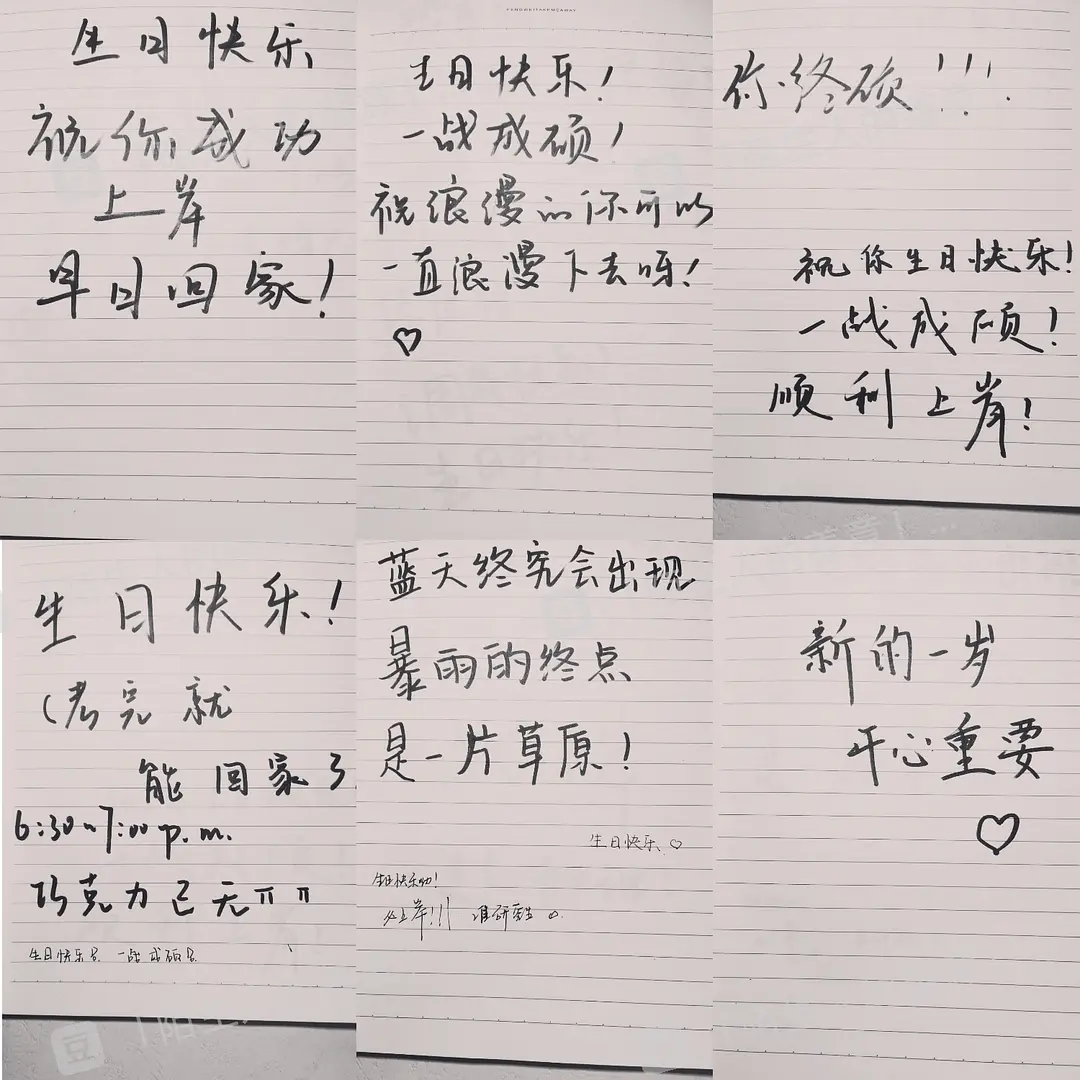 生日快乐
祝你成功
上岸
早日回家!
生日快乐!
一战成硕!
祝浪漫的你可以
一直浪漫下去呀!
♡
你终硕!!!
祝你生日快乐!
一战成硕!
顺利上岸!
生日快乐!
(考完就
能回家了
6:30~7:00 p.m.
巧克力已无ππ
生日快乐 一战成硕
蓝天终究会出现
暴雨的终点
是一片草原!
生日快乐 ♡
生日快乐!
上岸!!! 准研究生
新的一岁
开心重要
♡